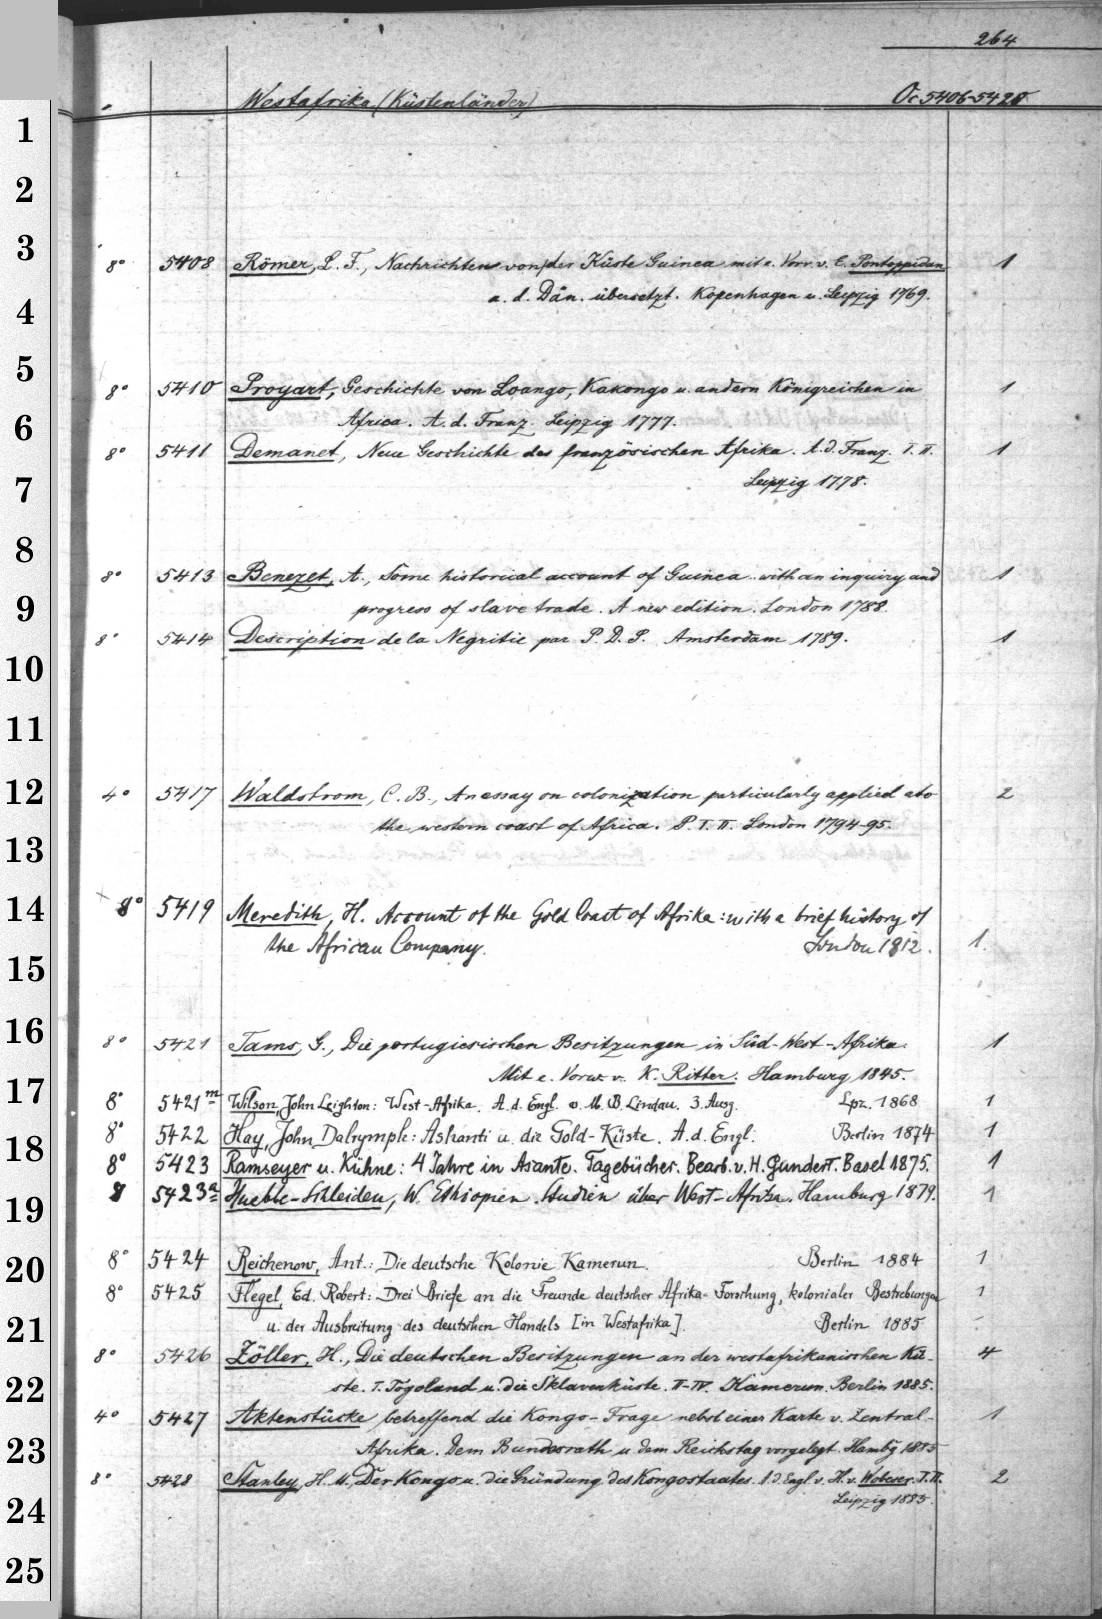 264
Westafrika (Küstenländer) Oc 5406-5428
1
2
3
8° 5408 Römer, L. F., Nachrichten von der Küste Guinea mit e. Vorr. v. E. Pontoppidan 1
a. d. Dän. übersetzt. Kopenhagen u. Leipzig 1769.
4
5
8° 5410 Proyart, Geschichte von Loango, Kakongo u. andern Königreichen in 1
6
Africa. A. d. Franz. Leipzig 1777.
8° 5411 Demanet, Neue Geschichte des französischen Afrika. A. d. Franz. I. II. 1
7
Leipzig 1778.
8
8° 5413 Benezet, A., Some historical account of Guinea.. with an inquiry and 1
9
progress of slave trade. A new edition. London 1788.
8° 5414 Description de la Negritie par P. D. P. Amsterdam 1789. 1
10
11
12
4° 5417 Waldstrom, C. B., An essay on colonization particularly applied a to 2
the western coast of Africa. P. I. II. London 1794-95.
13
14
8° 5419 Meredith, H. Account of the Gold Coast of Afrika: with a brief history of
the African Company. London 1812. 1.
15
16
8° 5421 Tams, G., Die portugiesischen Besitzungen in Süd-West-Afrika. 1
Mit e. Vorw. v. K. Ritter. Hamburg 1845.
17
8° 5421m Wilson, John Leighton: West-Afrika. A. d. Engl. v. M. B. Lindau. 3. Ausg. Lpz. 1868 1
8° 5422 Hay, John Dalrymple: Ashanti u. die Gold-Küste. A. d. Engl. Berlin 1874 1
18
8° 5423 Ramseyer u. Kühne: 4 Jahre in Asante. Tagebücher. Bearb. v. H. Gundert. Basel 1875. 1
8 5423a Huebbe-Schleiden, W. Ethiopien. Studien über West-Afrika. Hamburg 1879. 1
19
8° 5424 Reichenow, Ant.: Die deutsche Kolonie Kamerun. Berlin 1884 1
20
8° 5425 Flegel, Ed. Robert: Drei Briefe an die Freunde deutscher Afrika-Forschung, kolonialer Bestrebungen 1
21
u. der Ausbreitung des deutschen Handels [in Westafrika]. Berlin 1885
8° 5426 Zöller, H., Die deutschen Besitzungen an der westafrikanischen Kü- 4
22
ste. I. Togoland u. die Sklavenküste. II-IV. Kamerun. Berlin 1885.
4° 5427 Aktenstücke betreffend die Kongo-Frage nebst einer Karte v. Zentral- 1
23
Afrika. Dem Bundesrath u. dem Reichstag vorgelegt. Hambg 1885
8° 5428 Stanley, H. M., Der Kongo u. die Gründung des Kongostaates. A. d. Engl. v. H. v. Wobeser. I. II. 2
Leipzig 1885.
24
25